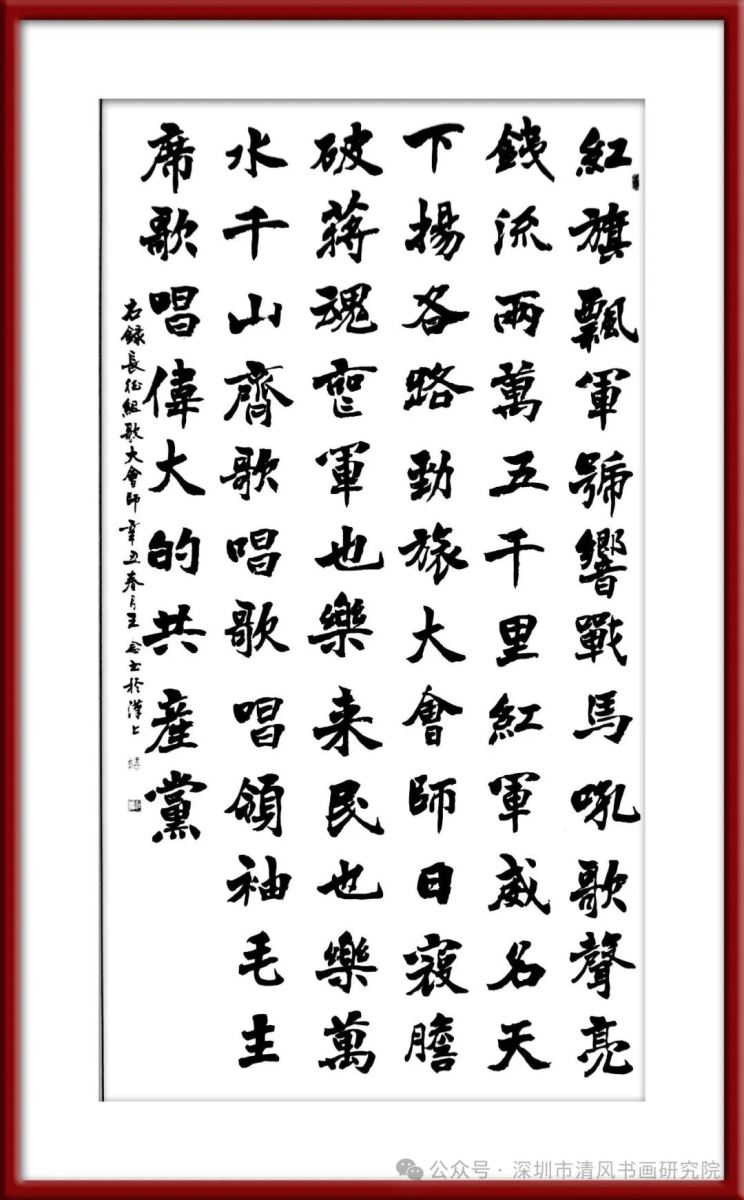 紅旗飄軍號響戰馬吼歌聲亮
銕流兩萬五千里紅軍威名天
下揚各路勁旅大會師日寇膽
破蔣魂喪軍也樂來民也樂萬
水千山齊歌唱歌唱領袖毛主
席歌唱偉大的共產黨
右録長征組歌大會師辛丑春月王书於漢上
公众号·深圳市清风书画研究院